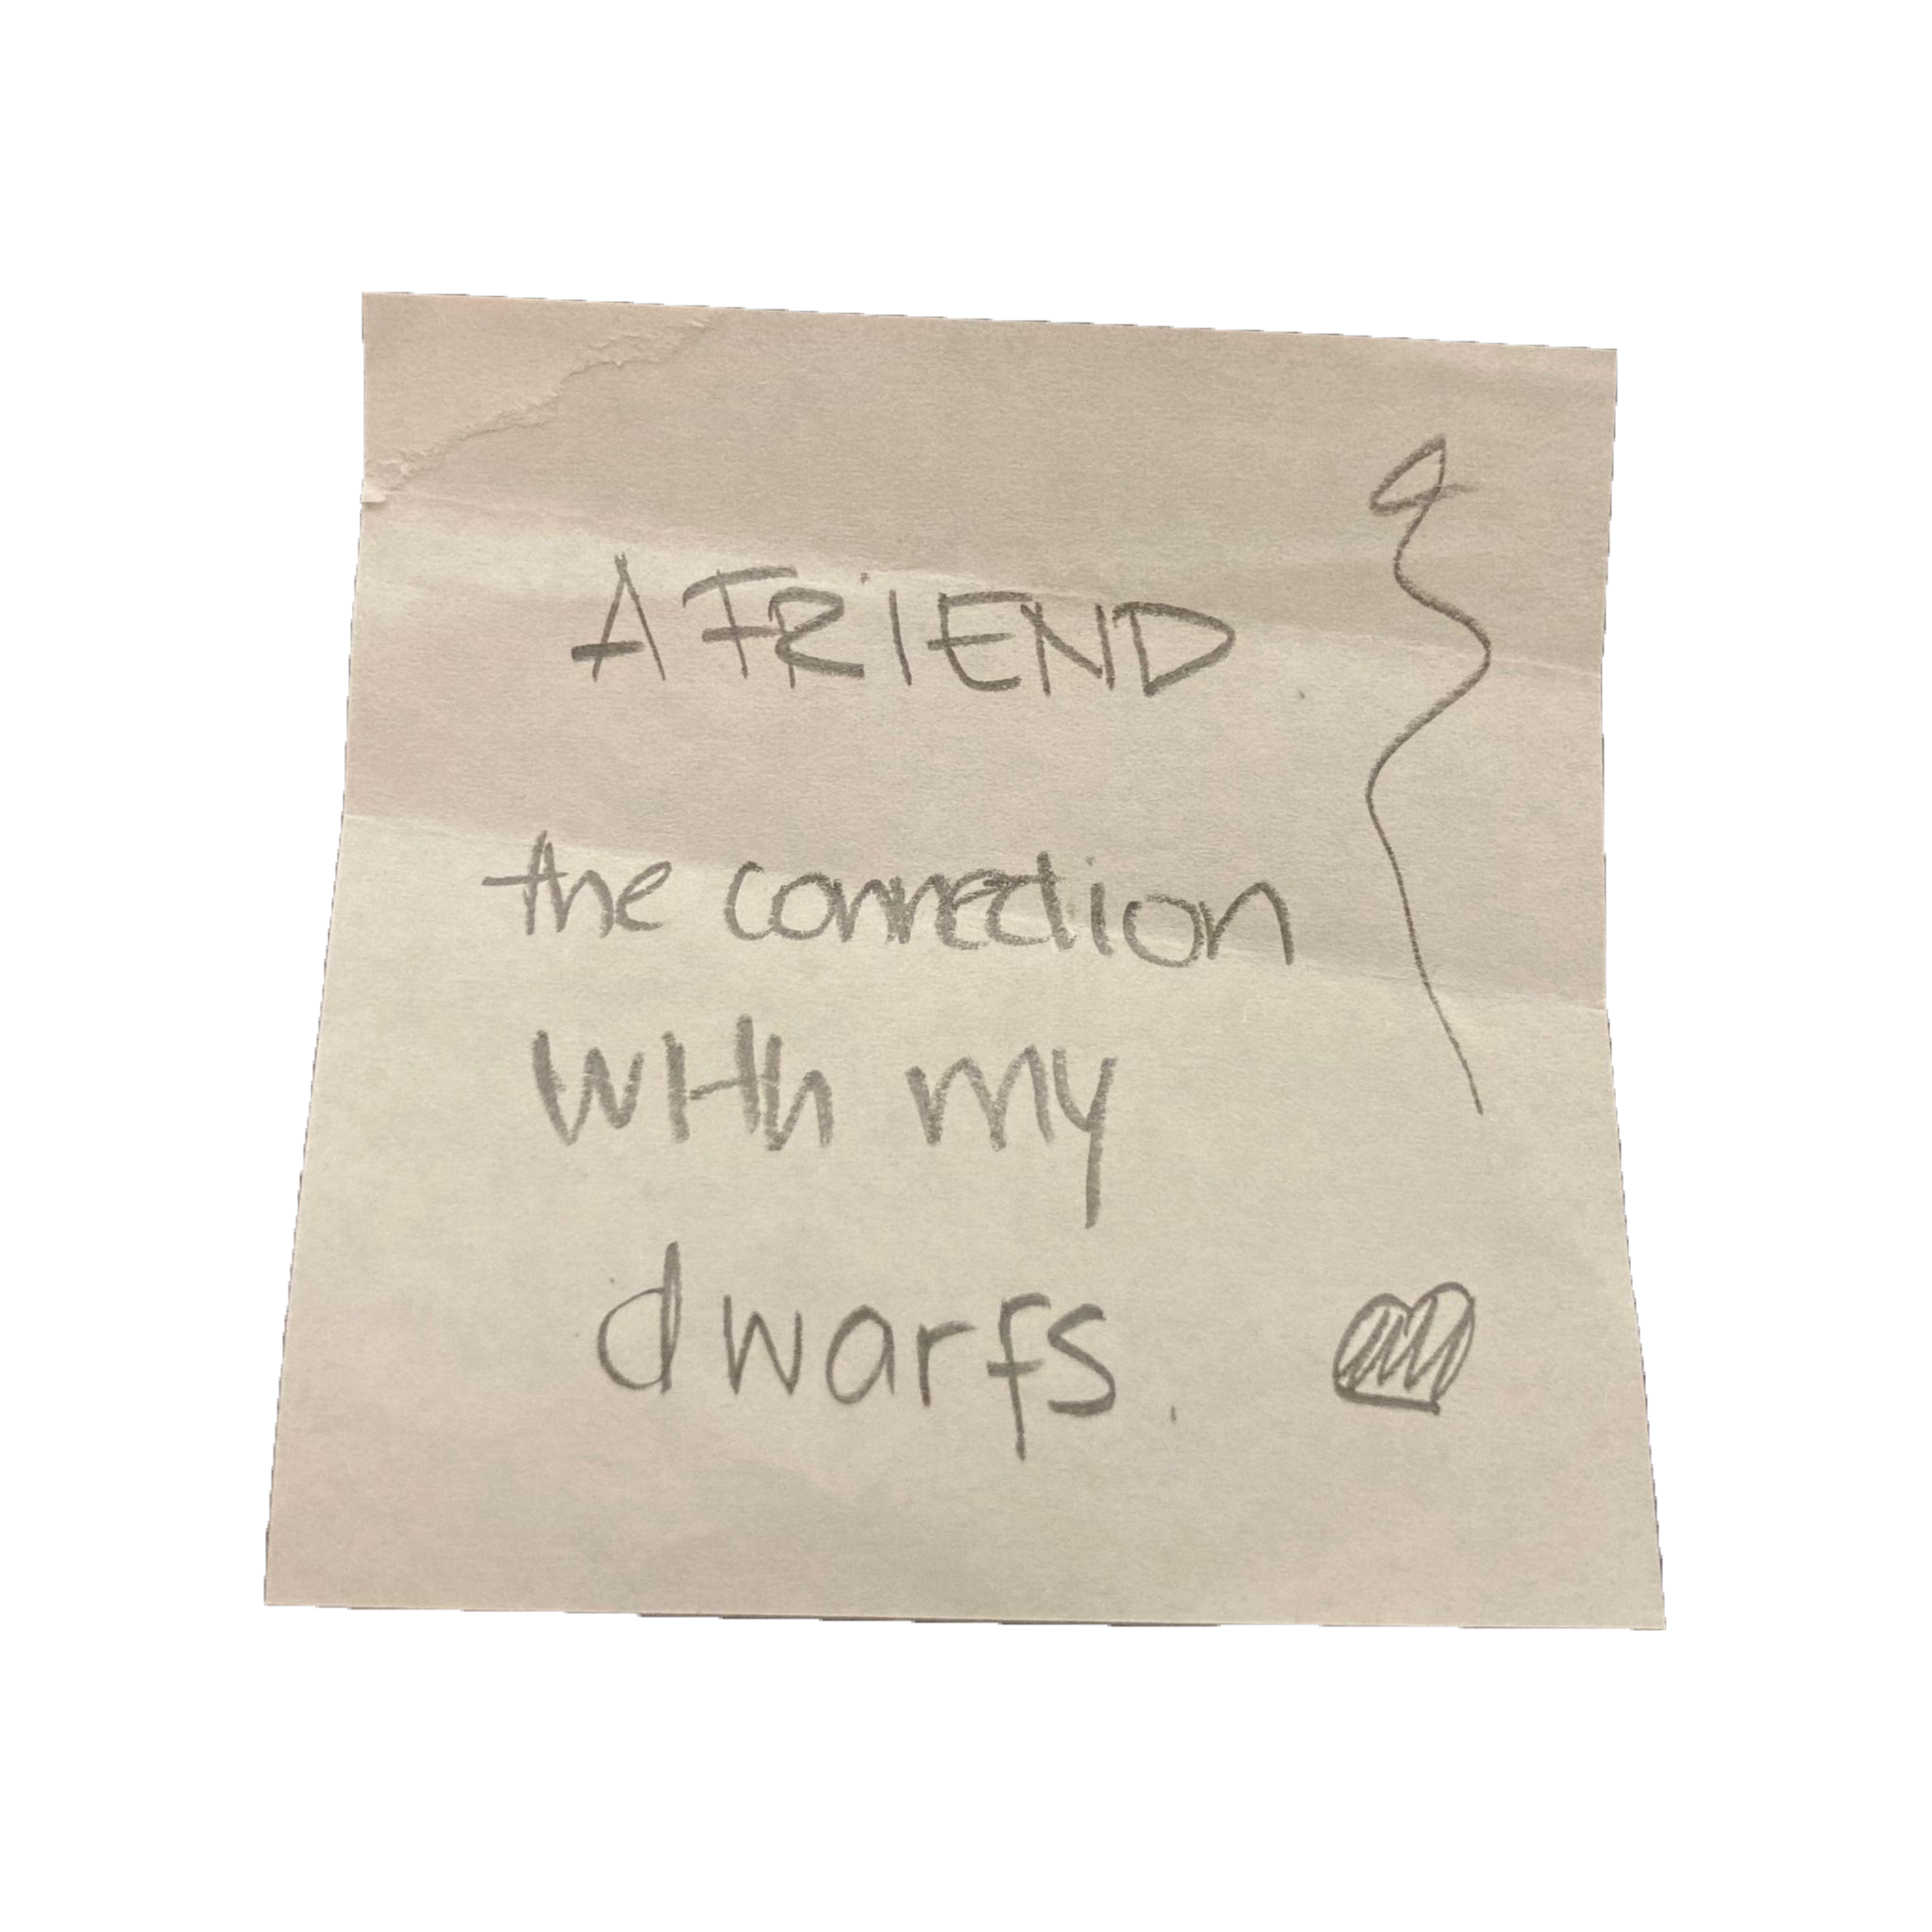 A FRIEND
the connection
with my
dwarfs.